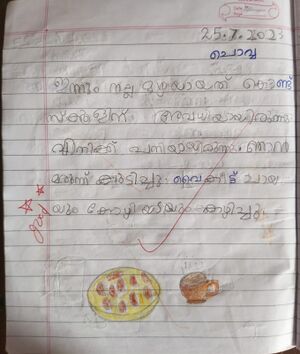 25.7.2023
ചൊവ്വ
ഇന്നും നല്ല മഴയായത് കൊണ്ട്
സ്കൂളിന് അവധിയായിരുന്നു
എനിക്ക് പനിയായിരുന്നു. ഞാൻ
മരുന്ന് കുടിച്ചു. വൈകീട്ട് ചായ
യും കോഴി അടയും കഴിച്ചു.